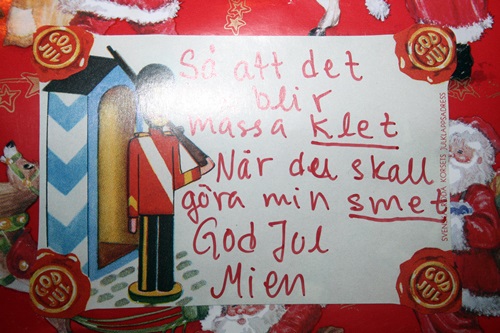 GOD JUL
GOD JUL
Så att det
blir
massa klet
När du skall
göra min smet
God Jul
Mien
GOD JUL
GOD JUL